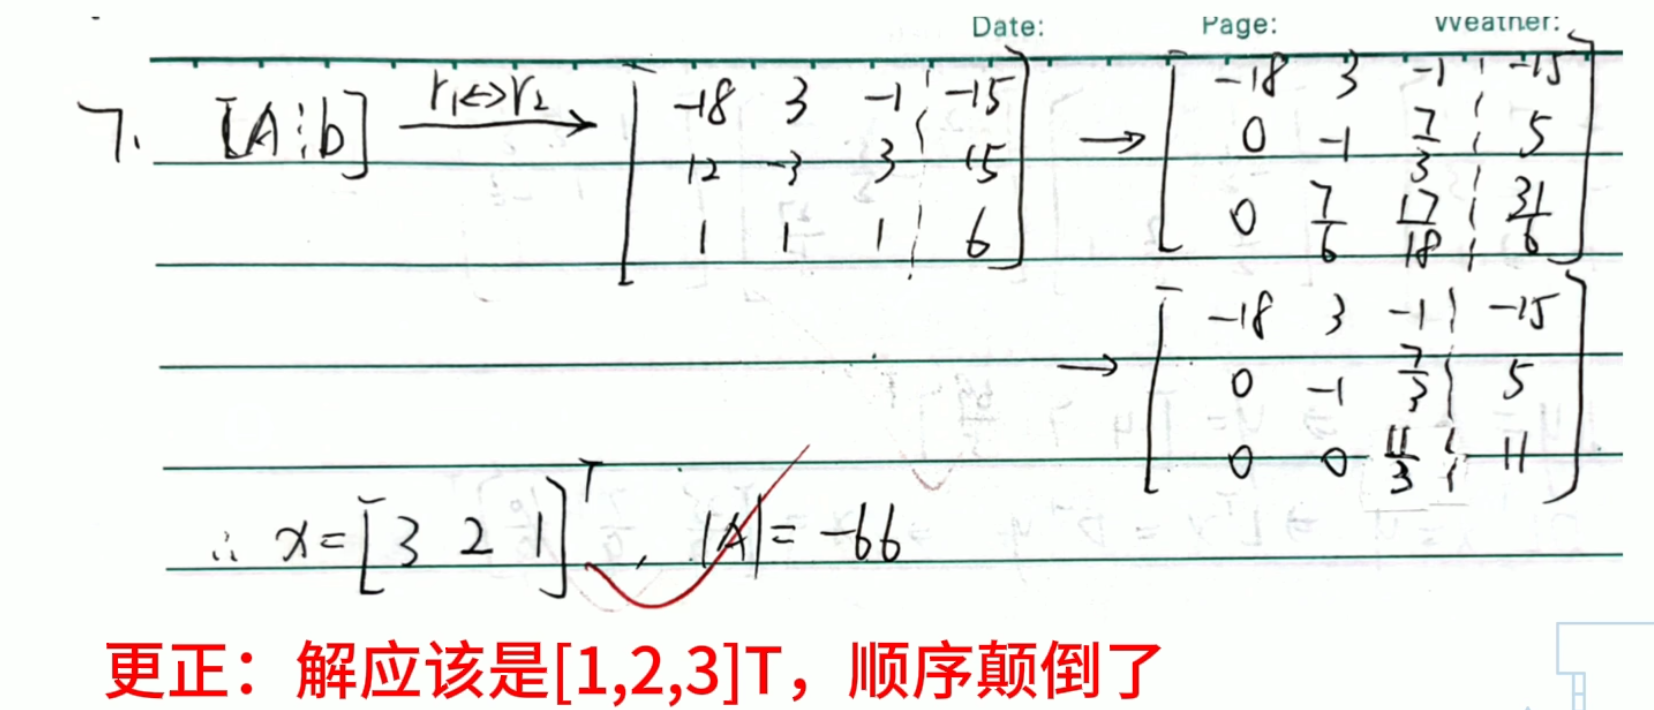 Date: Page: Weather:
7. [A⋮b] r₁↔r₂ → [-18 3 -1 ⋮ -15; 12 -3 3 ⋮ 15; 1 1 1 ⋮ 6] → [-18 3 -1 ⋮ -15; 0 -1 7/3 ⋮ 5; 0 7/6 17/18 ⋮ 31/6]
→ [-18 3 -1 ⋮ -15; 0 -1 7/3 ⋮ 5; 0 0 11/3 ⋮ 11]
∴ x=[3 2 1]ᵀ, |A|= -66
更正：解应该是[1,2,3]T，顺序颠倒了